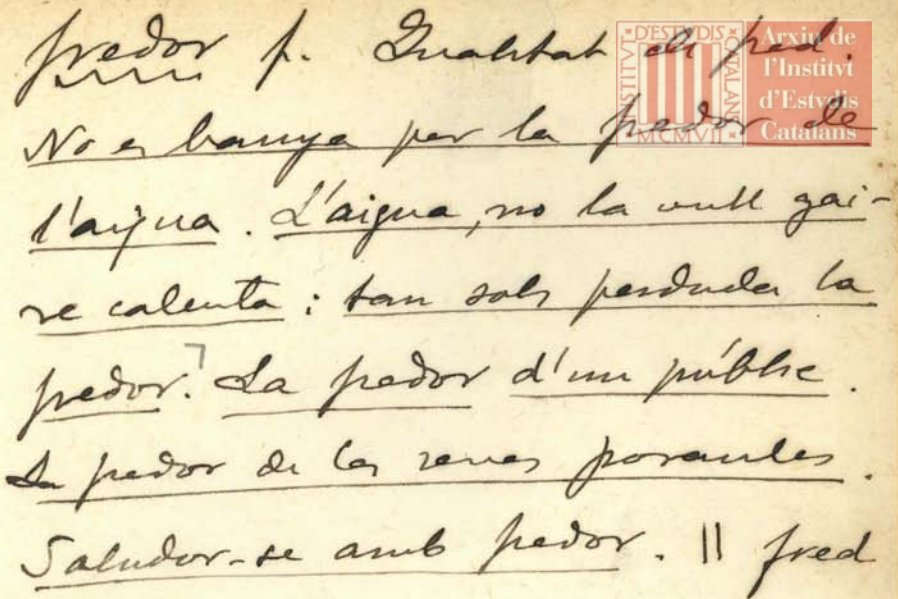 fredor f. Qualitat de fred.
No es banya per la fredor de
l'aigua. L'aigua, no la vull gai-
re calenta: tan sols perduda la
fredor. La fredor d'un públic.
La fredor de les seves paraules.
Saludar-se amb fredor. || fred
INSTITVT D'ESTVDIS CATALANS
MCMVII
Arxiu de
l'Institvt
d'Estvdis
Catalans